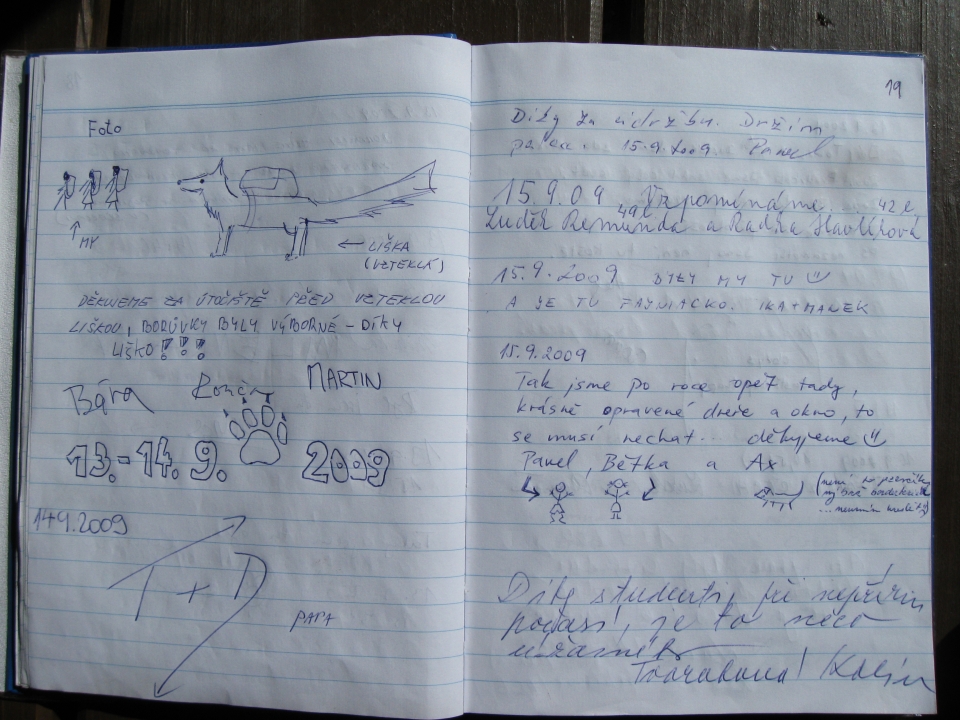 Foto
MY
LIŠKA
(VZTEKLÁ)
DĚKUJEME ZA ÚTOČIŠTĚ PŘED VZTEKLOU
LIŠKOU, BORŮVKY BYLY VÝBORNÉ - DÍKY
LIŠKO!!!
Bára
MARTIN
13.-14. 9. 2009
14.9.2009
T + D
PAPA
19
Díky za údržbu. Držím
15.9.2009 Pavel
15.9.09 Vzpomínáme. 42 l,
49l
Luděk Remunda a Radka Havlíková
15.9.2009 DÍKY MY TU
A JE TU FAJNIACKO. IKA+MAREK
15.9.2009
Tak jsme po roce opět tady,
krásně opravené dveře a okno, to
se musí nechat.. děkujeme
Pavel, Bětka a Ax
(není to
Díky studenti, při
počasí, je to něco
úžasného